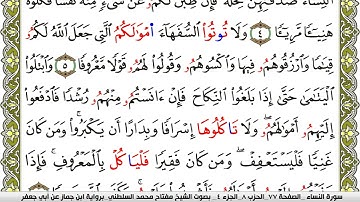 ٱلنِّسَآءَ صَدُقَٰتِهِنَّ نِحْلَةً فَإِن طِبْنَ لَكُمُۥ عَن شَيْءٍ مِّنْهُ نَفْسًا فَكُلُوهُ
هَنِيًّا مَّرِيًّا ٤ وَلَا تُوتُوا۟ ٱلسُّفَهَآءَ امْوَٰلَكُمُ ٱلَّتِي جَعَلَ ٱللَّهُ لَكُمُۥ
قِيَٰمًا وَٱرْزُقُوهُمُۥ فِيهَا وَٱكْسُوهُمُۥ وَقُولُوا۟ لَهُمُۥ قَوْلًا مَّعْرُوفًا ٥ وَٱبْتَلُوا۟
ٱلْيَتَٰمَىٰ حَتَّىٰٓ إِذَا بَلَغُوا۟ ٱلنِّكَاحَ فَإِنْ ءَانَسْتُمُۥ مِنْهُمُۥ رُشْدًا فَٱدْفَعُوٓا۟
إِلَيْهِمُۥ أَمْوَٰلَهُمُۥ ۖ وَلَا تَاكُلُوهَآ إِسْرَافًا وَبِدَارًا أَن يَكْبَرُوا۟ ۚ وَمَن كَانَ
غَنِيًّا فَلْيَسْتَعْفِفْ ۖ وَمَن كَانَ فَقِيرًا فَلْيَاكُلْ بِٱلْمَعْرُوفِ ۚ فَإِذَا
سورة النساء _ الصفحة ٧٧ _ الحزب ٨ _ الجزء ٤ _ بصوت الشيخ مفتاح محمد السلطني _ برواية ابن جماز عن أبي جعفر